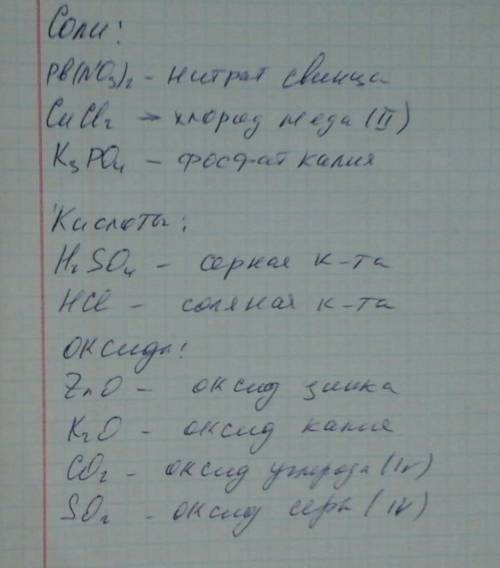 Соли:
Pb(NO3)2 - нитрат свинца
CuCl2 - хлорид меди (II)
K3PO4 - фосфат калия
Кислоты:
H2SO4 - серная к-та
HCl - соляная к-та
оксиды:
ZnO - оксид цинка
K2O - оксид калия
CO2 - оксид углерода (IV)
SO2 - оксид серы (IV)